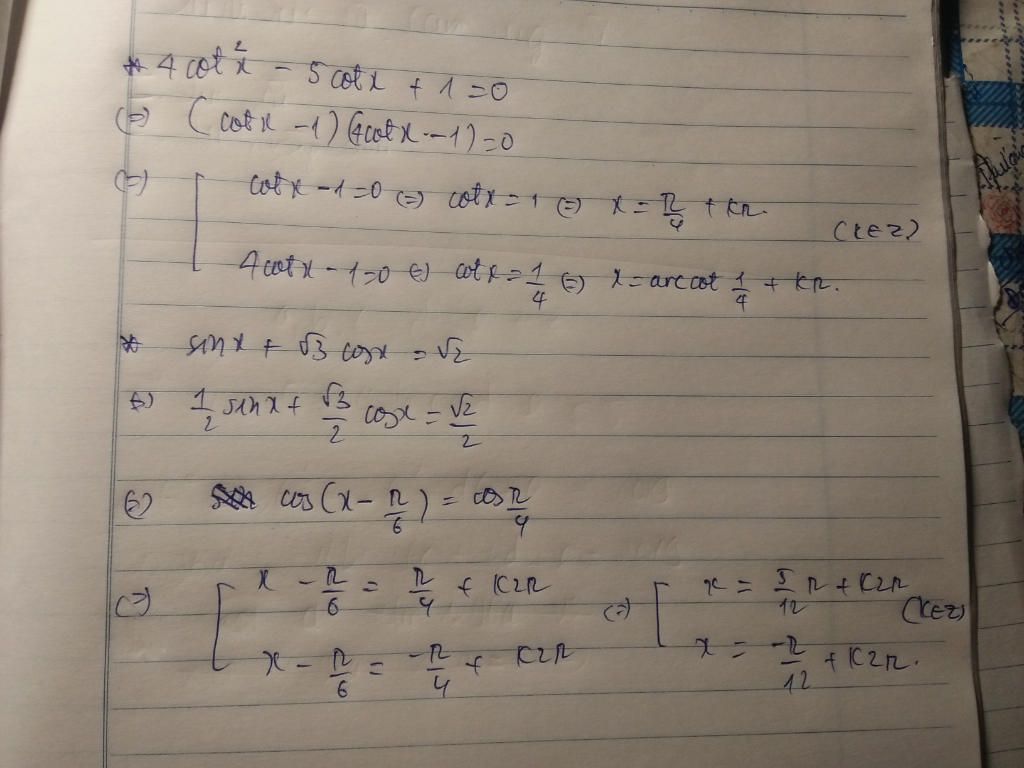 * 4cot²x - 5cotx + 1 = 0
(=) (cotx - 1)(4cotx - 1) = 0
(=) [ cotx - 1 = 0 (=) cotx = 1 (=) x = π/4 + kπ. (k∈Z)
4cotx - 1 = 0 (=) cotx = 1/4 (=) x = arccot 1/4 + kπ.
* sinx + √3 cosx = √2
(=) 1/2 sinx + √3/2 cosx = √2/2
(=) cos(x - π/6) = cos π/4
(=) [ x - π/6 = π/4 + k2π (=) [ x = 5/12 π + k2π (k∈Z)
x - π/6 = -π/4 + k2π x = -π/12 + k2π.